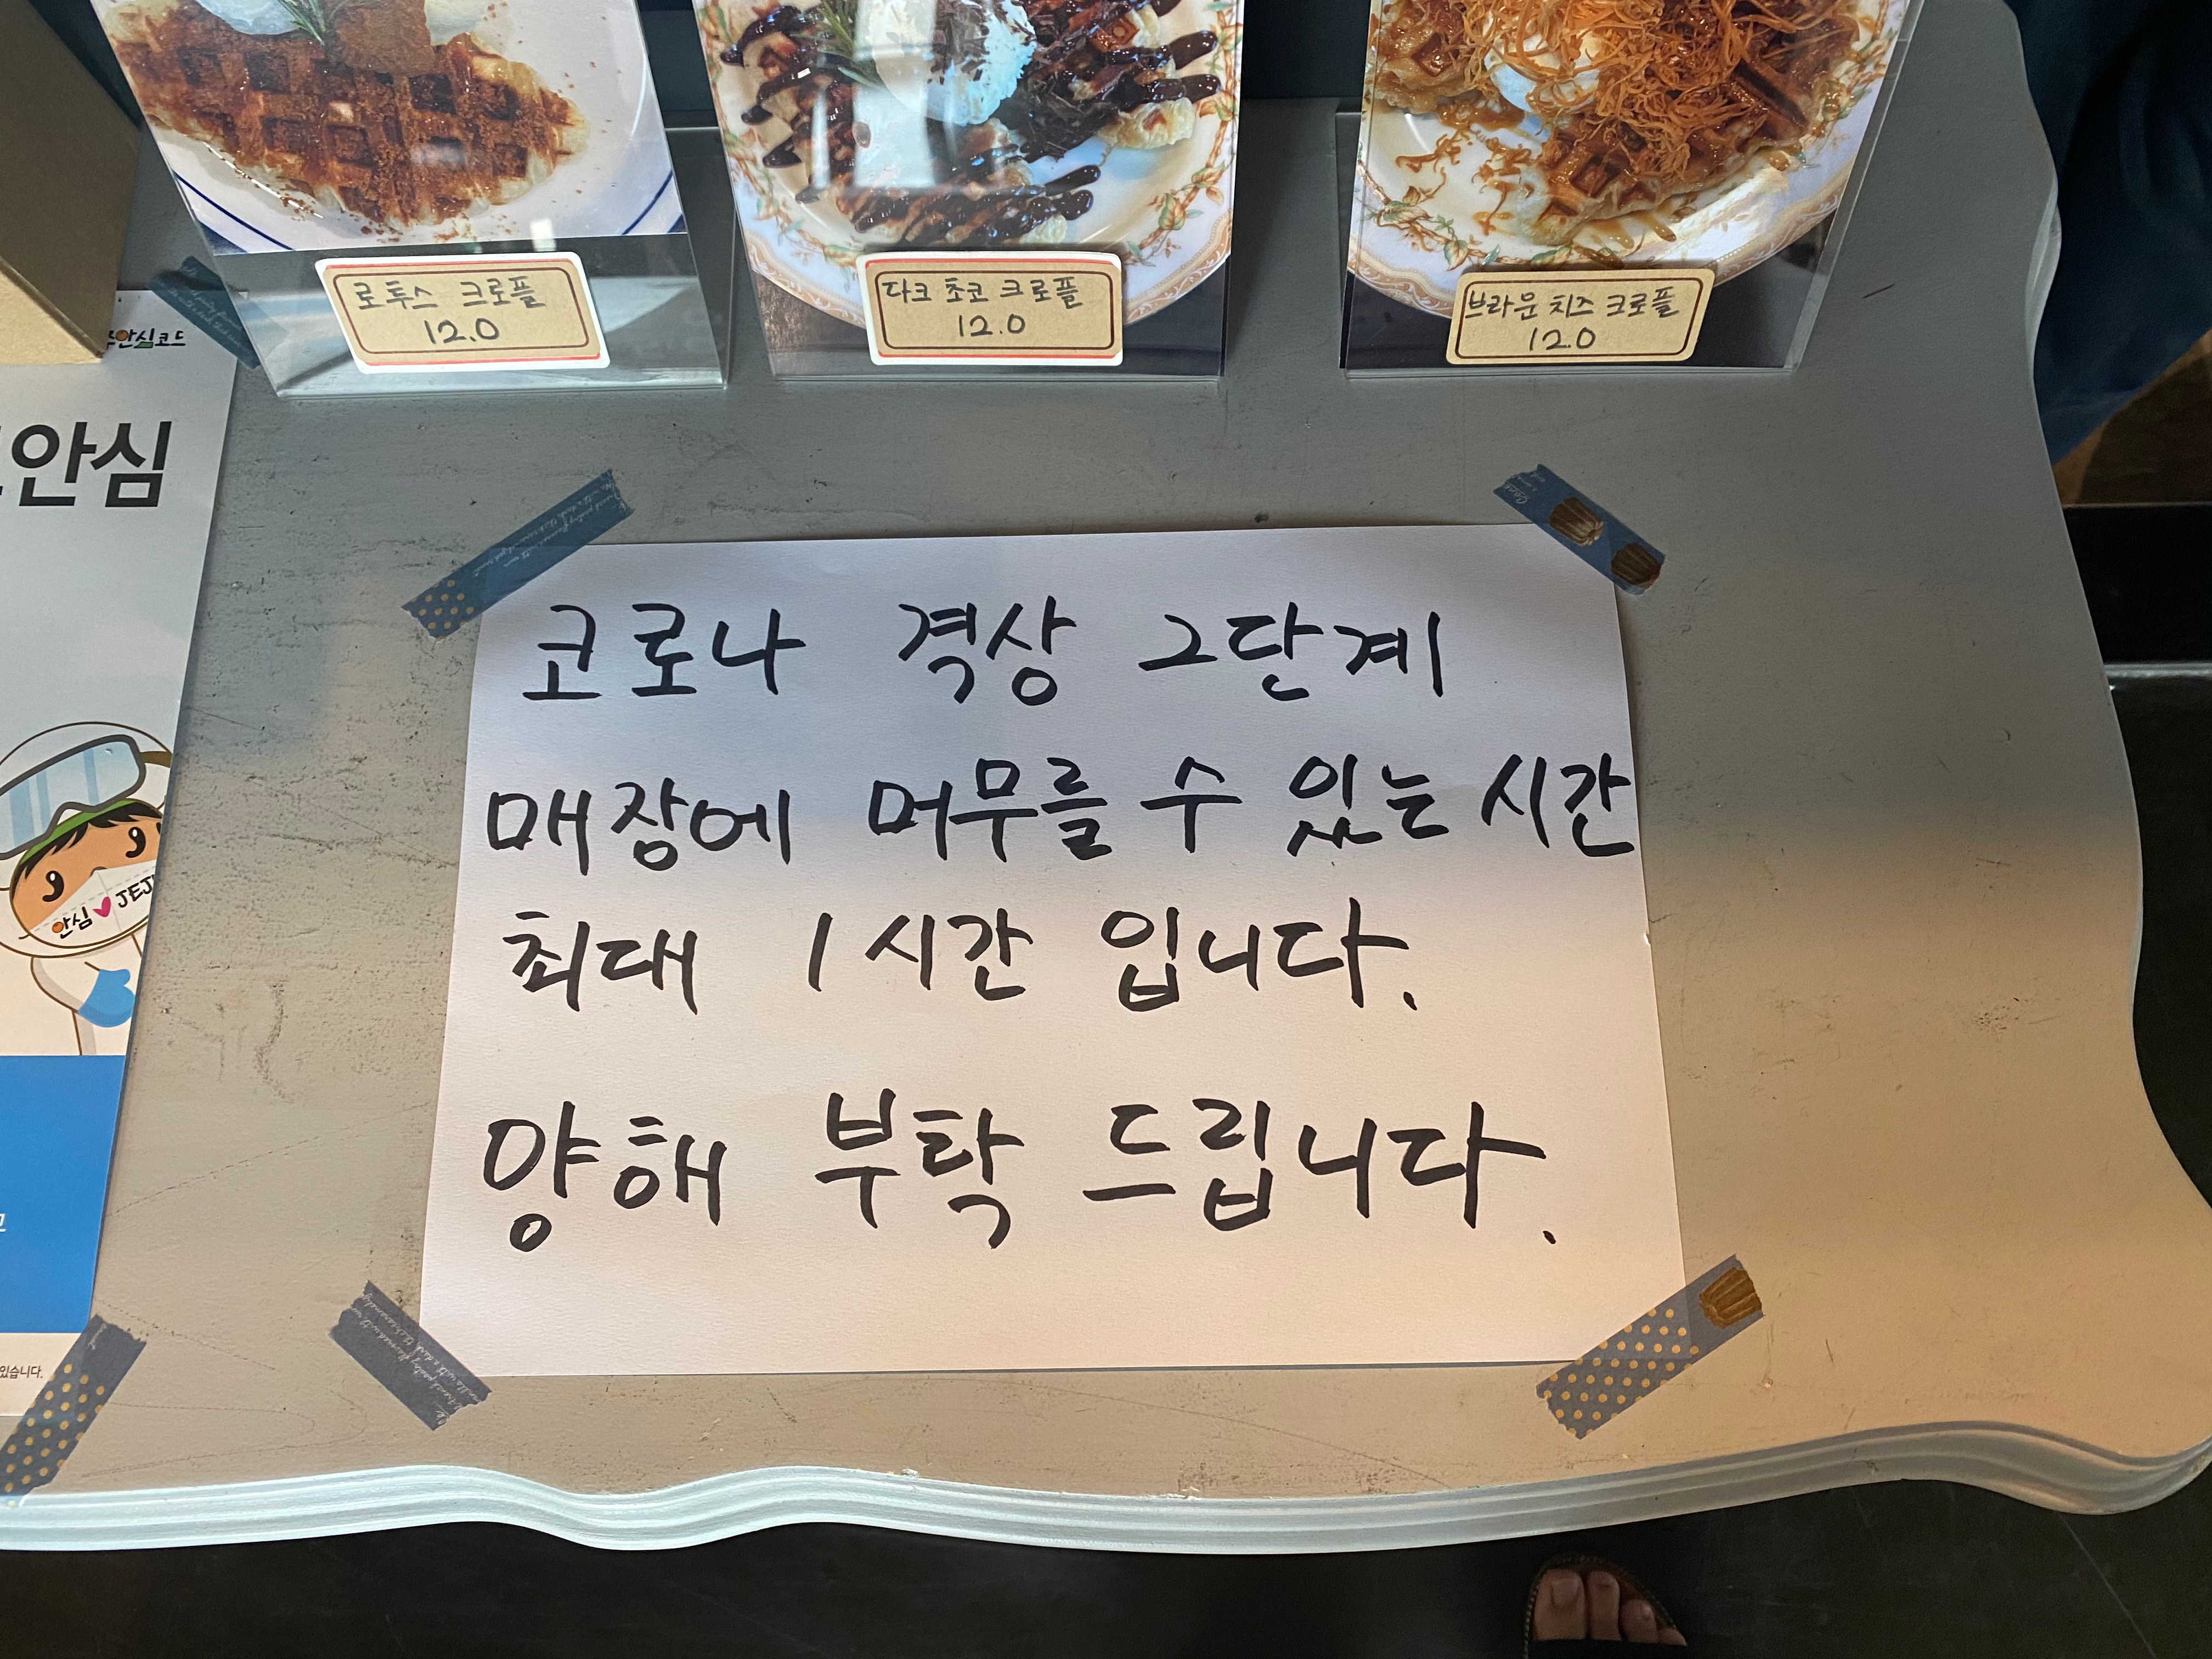 로투스 크로플
12.0
다크 초코 크로플
12.0
브라운 치즈 크로플
12.0
안심코드
안심
안심 JEJ
있습니다.
코로나 격상 2단계
매장에 머무를 수 있는 시간
최대 1시간 입니다.
양해 부탁 드립니다.